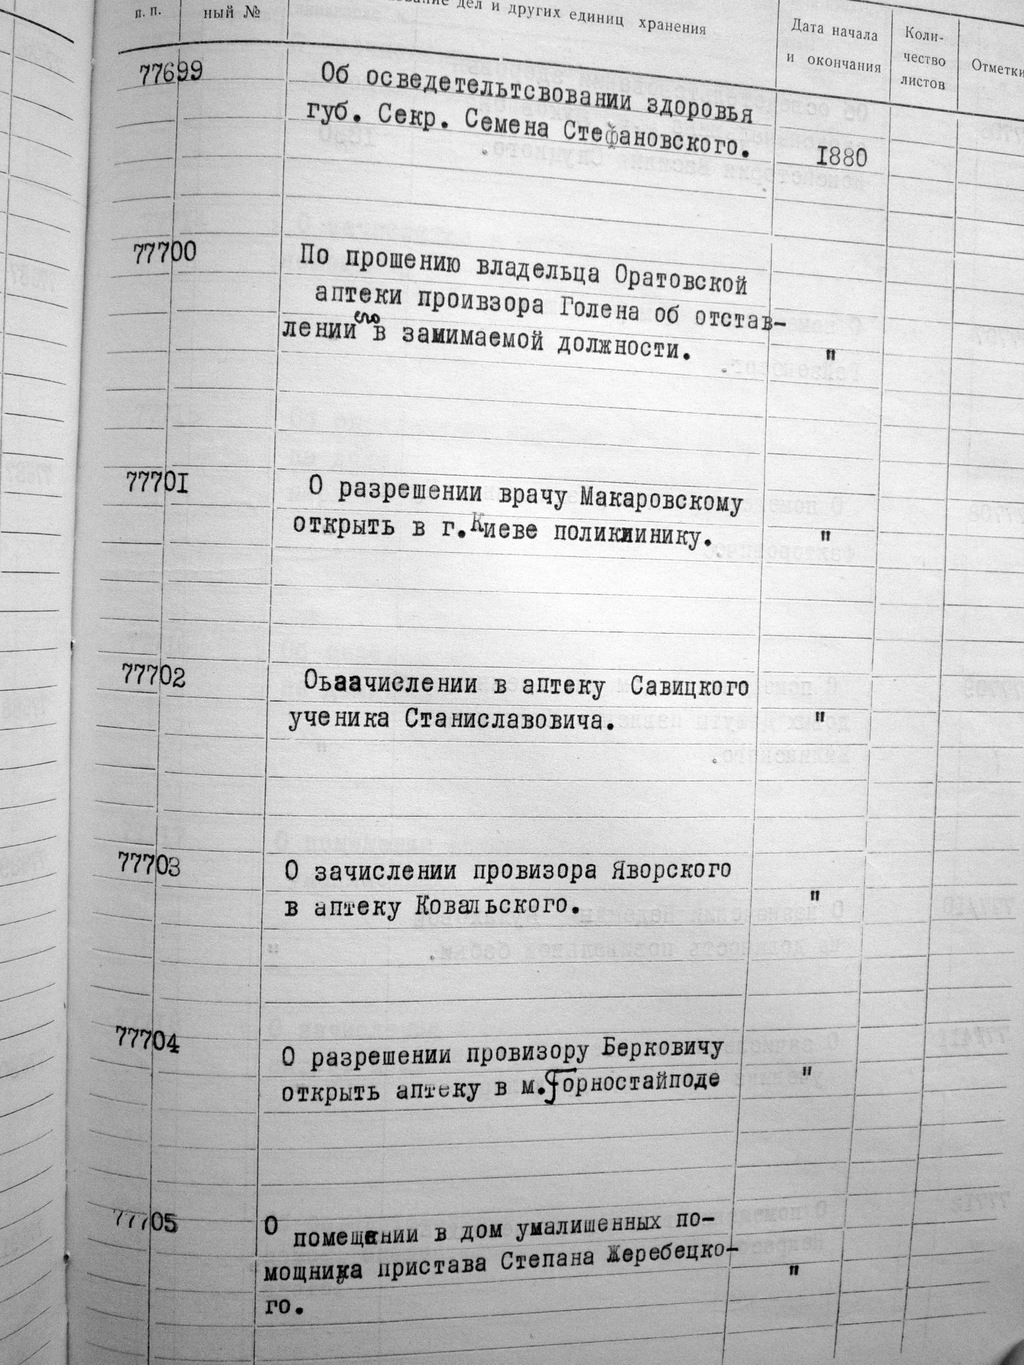 п.п.
ный №
дел и других единиц хранения
Дата начала
и окончания
Коли-
чество
листов
Отметки
77699
Об осведетельтсвовании здоровья
губ. Секр. Семена Стефановского.
1880
77700
По прошению владельца Оратовской
аптеки проивзора Голена об отстав-
лении его в занимаемой должности.
"
77701
О разрешении врачу Макаровскому
открыть в г. Киеве поликлинику.
"
77702
Оьзачислении в аптеку Савицкого
ученика Станиславовича.
"
77703
О зачислении провизора Яворского
в аптеку Ковальского.
"
77704
О разрешении провизору Берковичу
открыть аптеку в м. Горностайподе
"
77705
О помещении в дом умалишенных по-
мощника пристава Степана Жеребецко-
го.
"